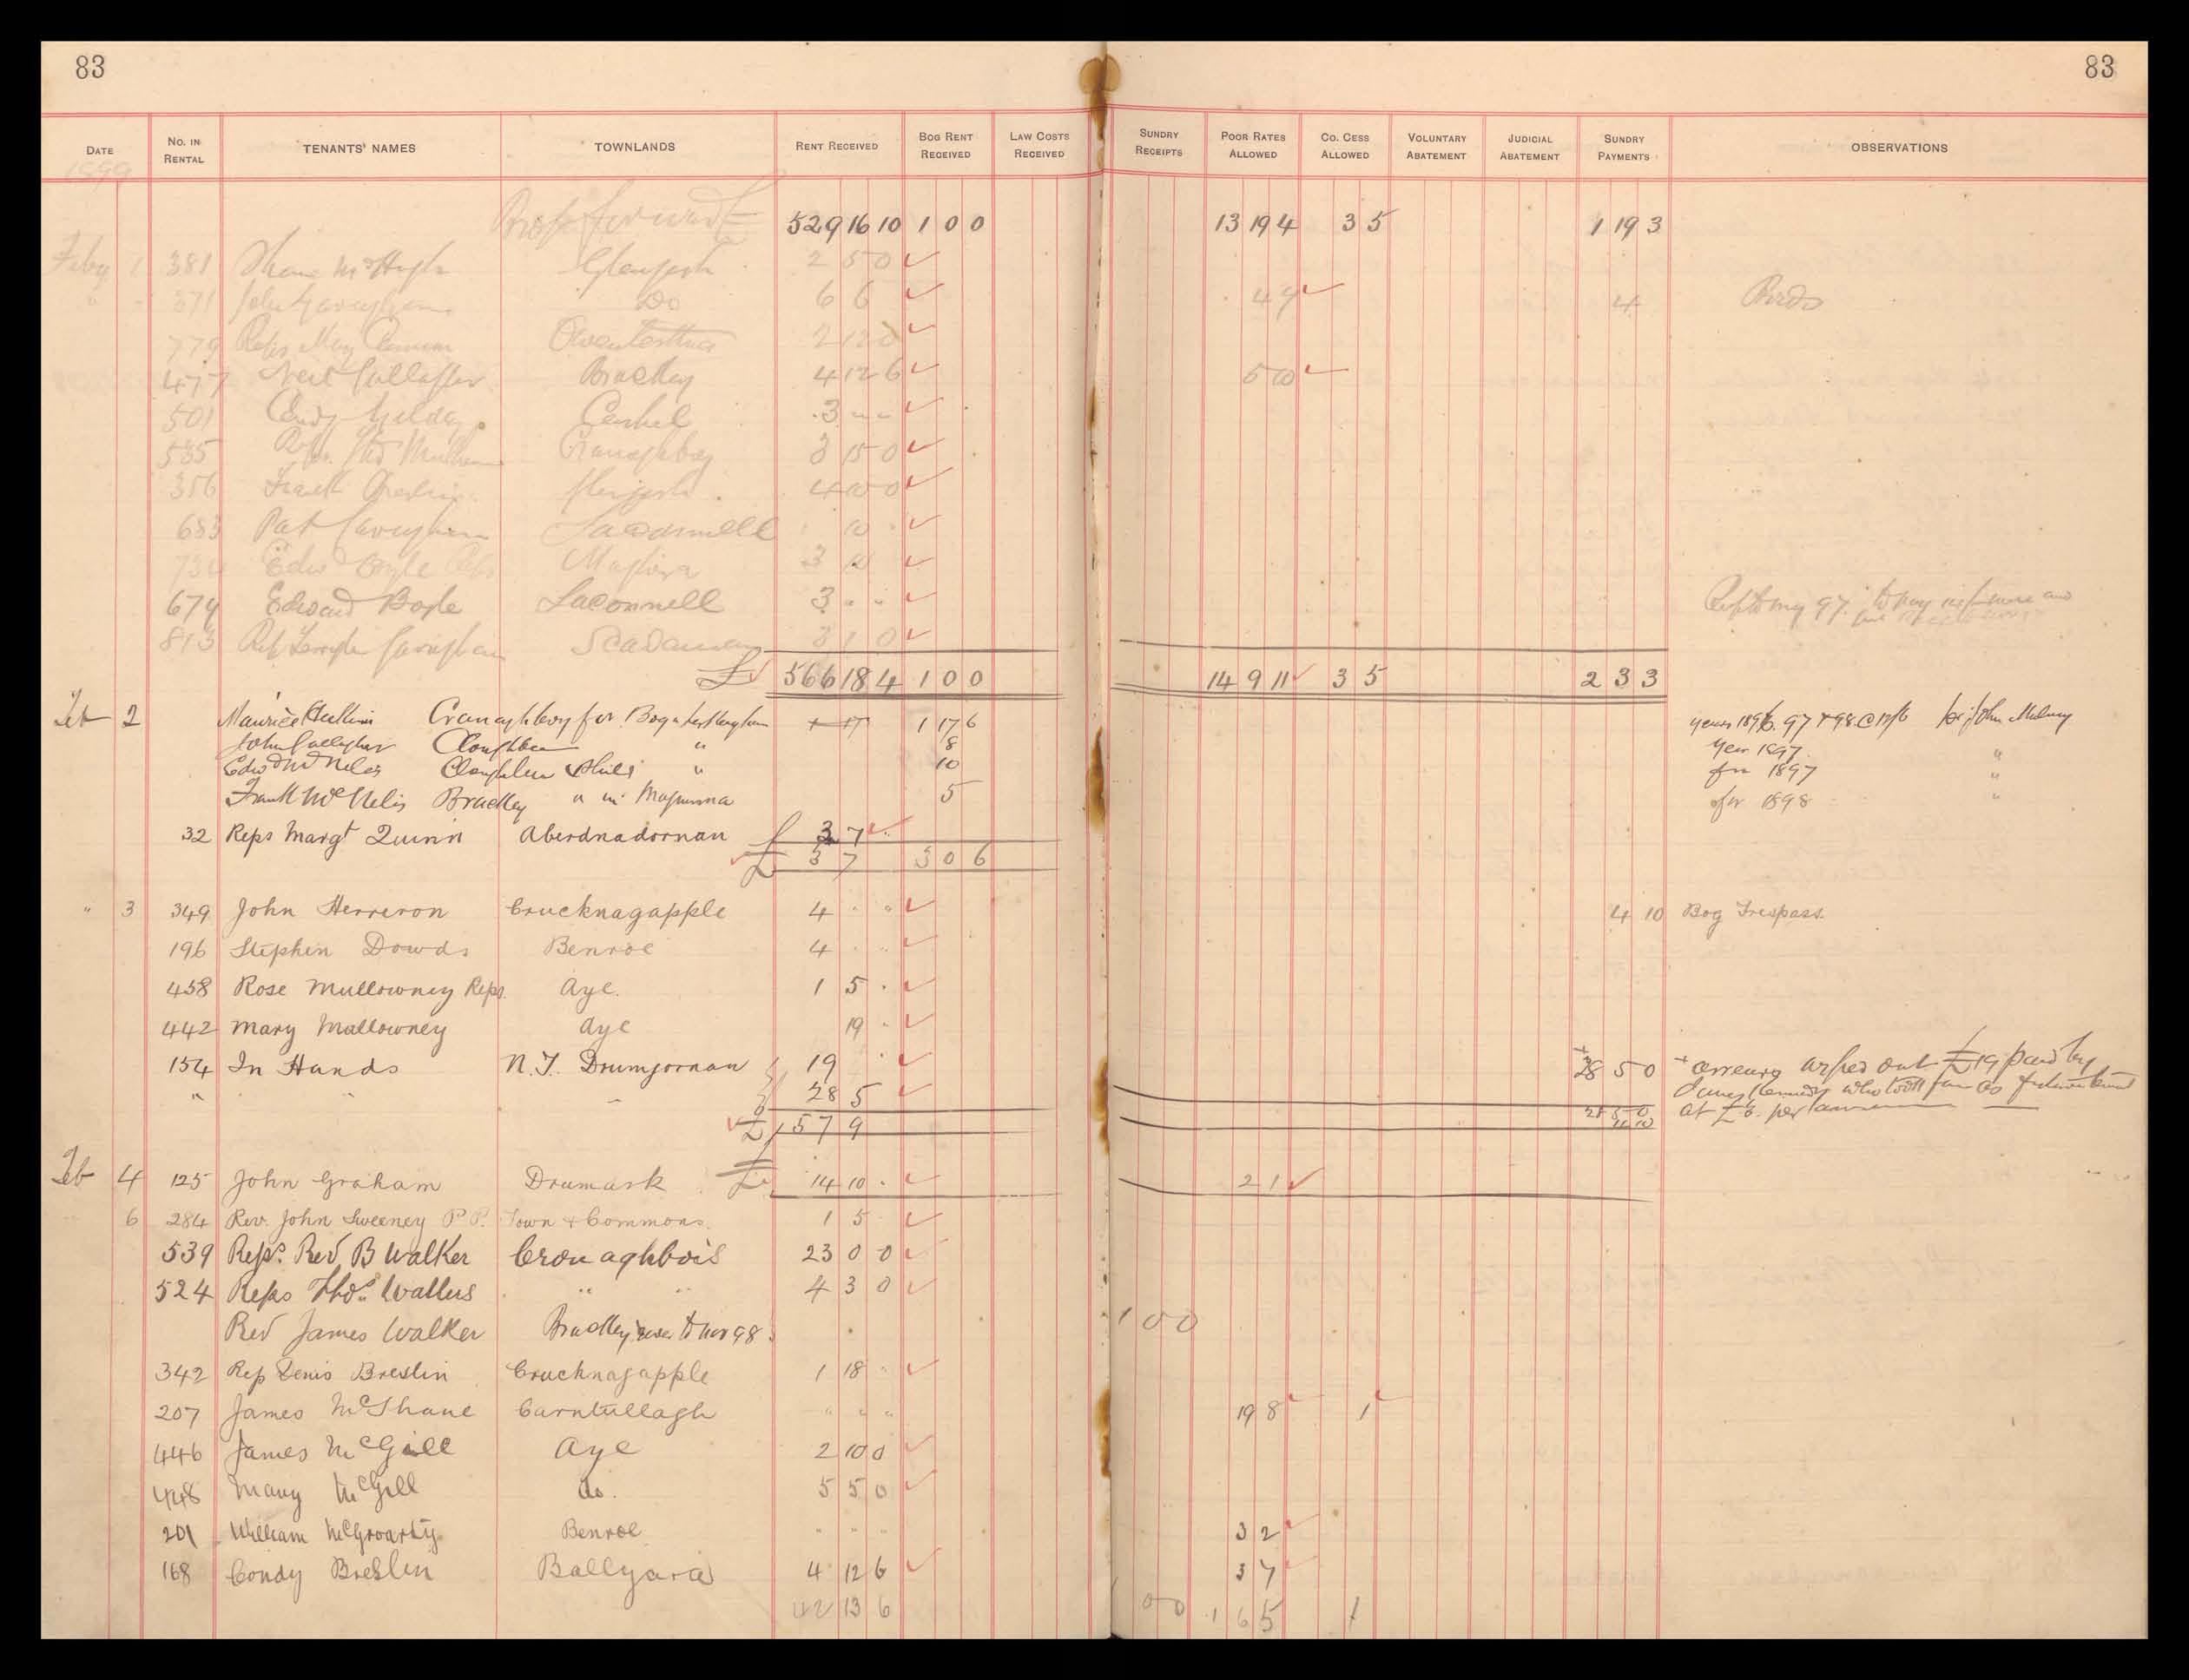 83 83
DATE No. IN RENTAL TENANTS' NAMES TOWNLANDS RENT RECEIVED BOG RENT RECEIVED LAW COSTS RECEIVED SUNDRY RECEIPTS POOR RATES ALLOWED CO. CESS ALLOWED VOLUNTARY ABATEMENT JUDICIAL ABATEMENT SUNDRY PAYMENTS OBSERVATIONS
1899
forward 529 16 10 1 0 0 13 19 4 3 5 1 19 3
Feby 1 381 McHugh Glengesh 2 5 0
" 371 John Gavighan Do 6 6 4 4
779 Reps Mary 2 12 0
477 Neil Gallagher Brackey 4 12 6 5 10
501 Condy Gildea Cashel 3 - -
535 Cranaghboy 3 15 0
356 Frank Breslin Glengesh 4 10 0
683 Pat Gavighan Laconnell 10
Edwd Boyle Reps Maghera 3 10
679 Edward Boyle Laconnell 3 " "
813 Gavighan Scadaman 3 1 0
£ 566 18 4 1 0 0 14 9 11 3 5 2 3 3
Feb 2 Maurice Cranaghboy for Bog 1 17 6 years 1896. 97 & 98. @ 12/6 John
John Gallagher " 8 year 1897 "
Edwd McNeles " 10 for 1897 "
Frank McNelis Brackey " in 5 for 1898 "
32 Reps Margt Quinn Aberdnadornan 3 7
£ 3 7 3 0 6
" 3 349 John Herreron Crucknagapple 4 " " 4 10 Bog Trespass.
196 Stephen Dowds Benroe 4 " "
458 Rose Mullowney Reps. Aye. 1 5 "
442 Mary Mallowney Aye 19 "
154 In Hands N.T. Drumgornan 19 " + 28 5 0 + arrears wiped out £19 paid by
" " " 28 5 James Kennedy who took farm as
£ 57 9 28 5 0 4 10 at £6. per annum
Feb 4 125 John Graham Drumark £ 14 10 " 2 1
6 284 Rev. John Sweeney P.P. Town & Commons. 1 5
539 Reps. Revd B Walker Cronaghbois 23 0 0
524 Reps Thos. Wallus " " 4 3 0
Rev James Walker Brackey to Nov 98. 1 0 0
342 Rep Denis Breslin Crucknagapple 1 18 "
207 James McShane Carntullagh " " " 19 8 1
446 James McGill Aye 2 10 0
448 Mary McGill do. 5 5 0
201 William McGroarty Benroe " " " 3 2
168 Condy Breslin Ballyara 4 12 6 3 7
42 13 6 0 0 1 6 5 1